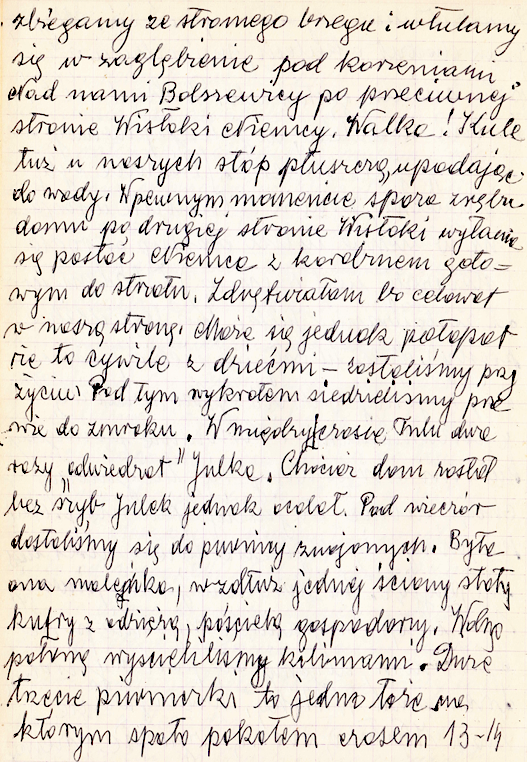 zbiegamy ze stromego brzegu i wtulamy
się w zagłębienie pod korzeniami
Nad nami Bolszewicy po przeciwnej
stronie Wisłoki Niemcy. Walka! Kule
tuż u naszych stóp pluszczą, upadając
do wody. W pewnym momencie spoza zrębu
domu po drugiej stronie Wisłoki wyłania
się postać Niemca z karabinem goto=
wym do strzału. Zdrętwiałam bo celował
w naszą stronę. Może się jednak połapał
że to cywile z dziećmi – zostaliśmy przy
życiu. Pod tym wykrotem siedzieliśmy pra
wie do zmroku. W międzyczasie Tulu dwa
razy "odwiedzał" Julka. Chociaż dom został
bez szyb Julek jednak ocalał. Pod wieczór
dostaliśmy się do piwnicy znajomych. Była
ona maleńka, wzdłuż jednej ściany stały
kufry z odzieżą, pościelą gospodarzy. Wolną
połowę wyścieliliśmy kilimami. Dwie
trzecie piwniczki to jedno łoże na
którym spało pokotem czasem 13–14